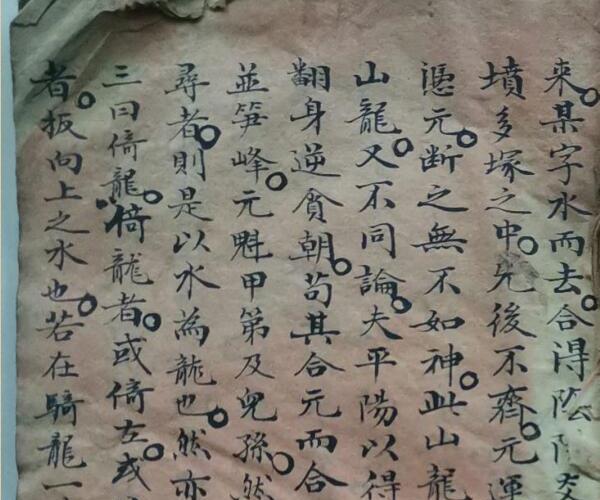 來某字水而去合得陰陽
墳多塚之中先後不齊元運
憑元断之無不如神此山龍
山龍又不同論夫平陽以得
翻身逆貪朝苟其合元而合
並笋峰元魁甲第及兒孫然
尋者則是以水為龍也然亦
三曰倚龍倚龍者或倚左或
者扳向上之水也若在騎龍一